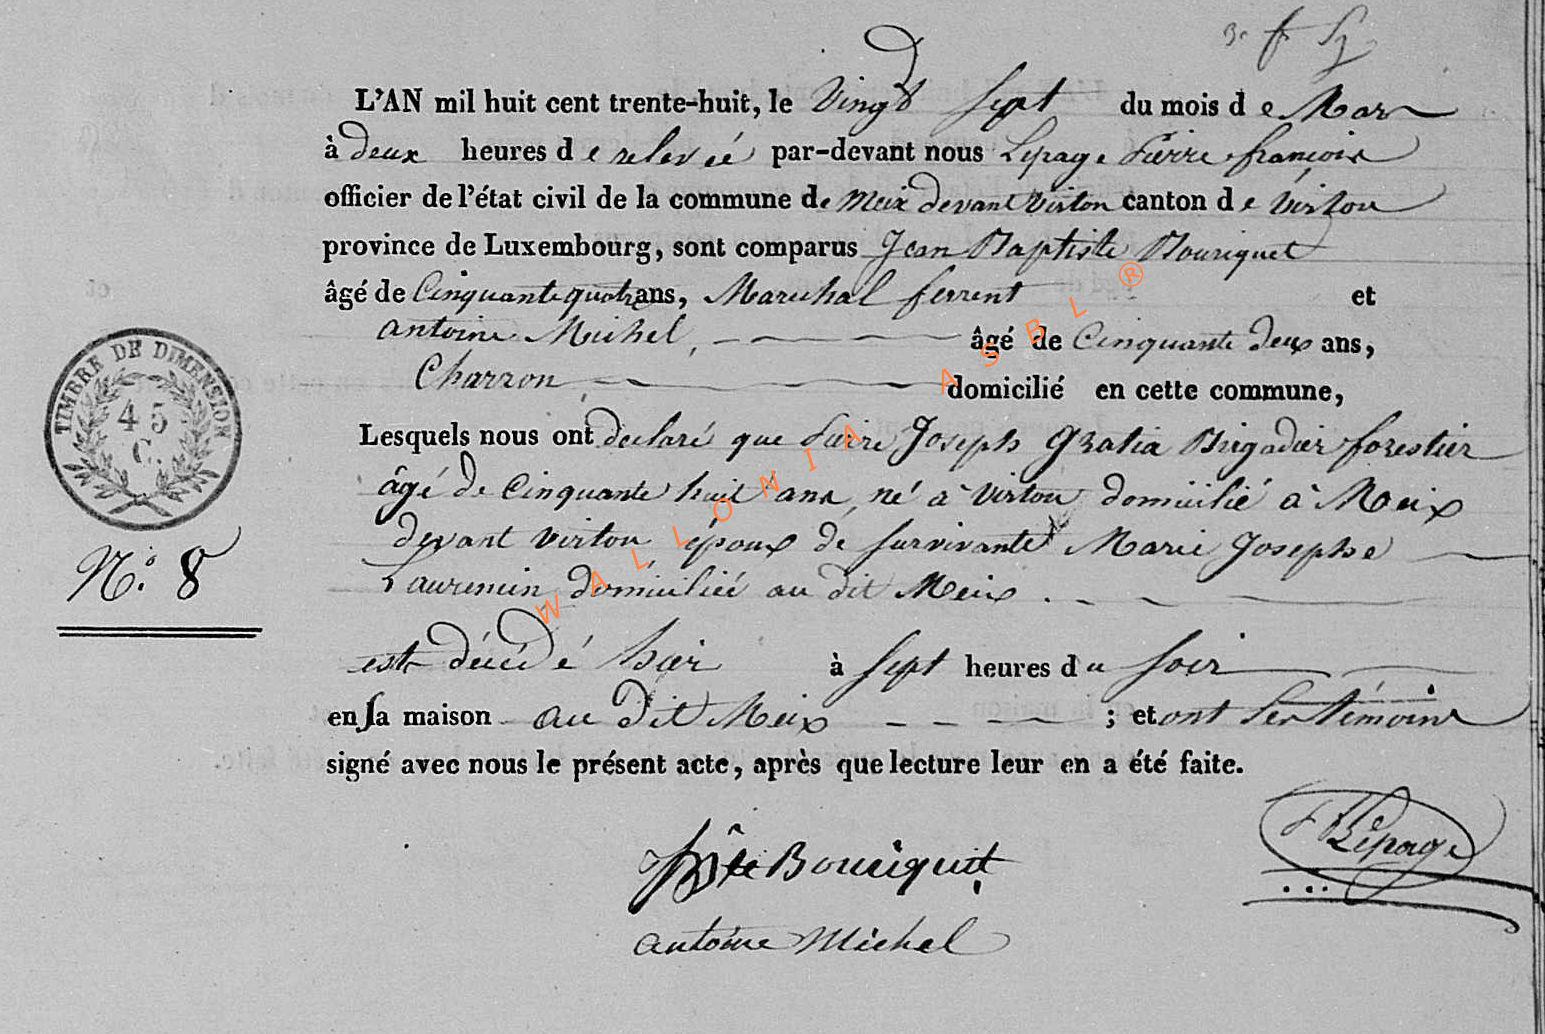 L'AN mil huit cent trente-huit, le Vingt Sept du mois de Mars
à deux heures de relevée par-devant nous Lepage Pierre françois
officier de l'état civil de la commune de Meix devant Virton canton de Virton
province de Luxembourg, sont comparus Jean Baptiste Bouriquet
âgé de Cinquante quatre ans, Marechal ferrent et
antoine Michel, âgé de Cinquante deux ans,
Charron, domicilié en cette commune,
Lesquels nous ont declaré que Pierre Joseph Gratia Brigadier forestier
âgé de Cinquante huit ans, né à Virton domicilié à Meix
devant Virton époux de survivante Marie Josephe
Lauremin domiciliée au dit Meix.
est décédé hier à Sept heures du Soir
en sa maison au dit Meix ; et ont les témoins
signé avec nous le présent acte, après que lecture leur en a été faite.
TIMBRE DE DIMENSION
45
C.
N.º 8
Bte Bouriquet
Lepage
antoine Michel
WALLONIA ASBL ®